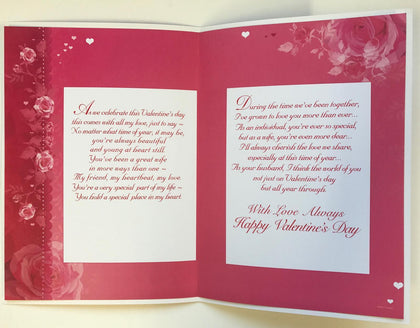 As we celebrate this Valentine's day
this comes with all my love, just to say ~
No matter what time of year, it may be,
you're always beautiful
and young at heart still.
You've been a great wife
in more ways than one ~
My friend, my heartbeat, my love.
You're a very special part of my life ~
You hold a special place in my heart.
During the time we've been together,
I've grown to love you more than ever...
As an individual, you're ever so special,
but as a wife, you're even more dear...
I'll always cherish the love we share,
especially at this time of year...
As your husband, I think the world of you
not just on Valentine's day
but all year through.
With Love Always
Happy Valentine's Day